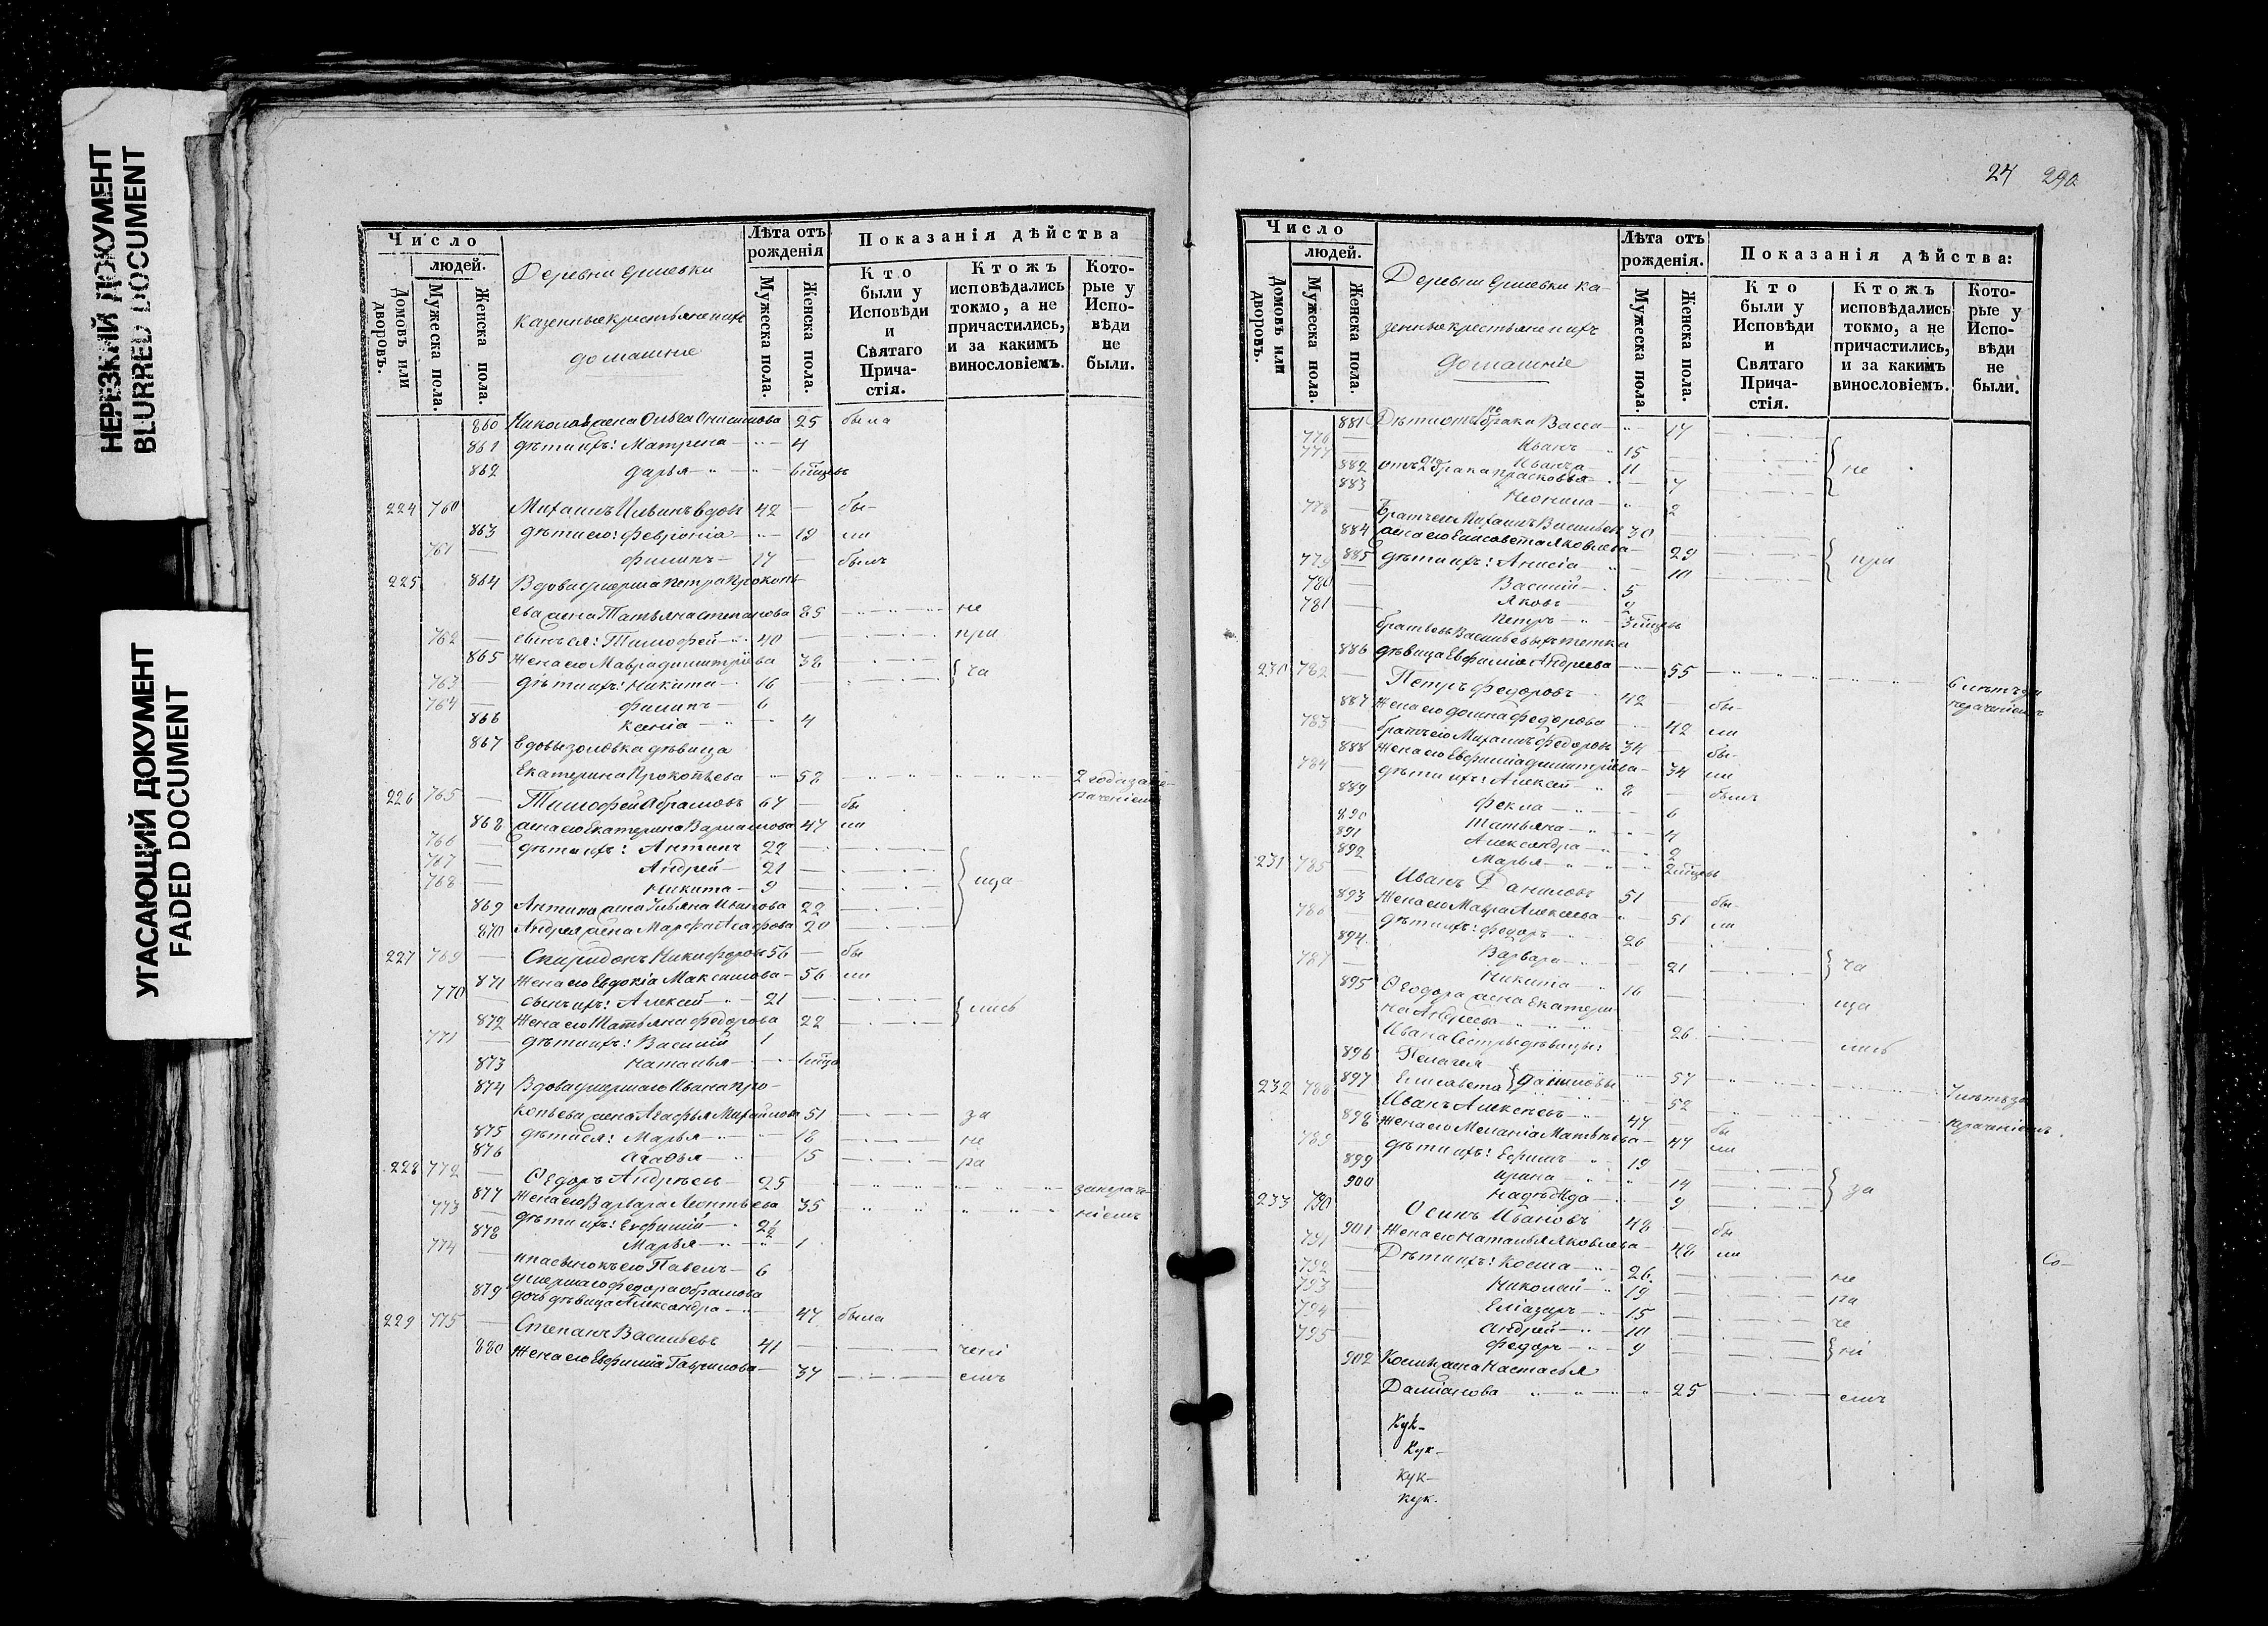 НЕРЕЗКИЙ ДОКУМЕНТ
BLURRED DOCUMENT
УГАСАЮЩИЙ ДОКУМЕНТ
FADED DOCUMENT
Число
людей.
Домовъ или дворовъ.
Мужеска пола.
Женска пола.
Деревни Ершевки
казенные крестьяне и ихъ
домашніе
Лѣта отъ рожденія
Мужеска пола.
Женска пола.
Показанія дѣйства
Кто были у Исповѣди и Святаго Причастія.
Ктожъ исповѣдались токмо, а не причастились, и за какимъ винословіемъ.
Которые у Исповѣди не были.
860 Николая жена Ольга Онисимова 25 была
861 дѣти ихъ: Матрена 4
862 Дарья 6 мѣцевъ
224 760 Михаилъ Ильинъ вдовъ 42 бы-
863 дѣти его: Февронія 19 ли
761 Филипъ 17 былъ
225 864 Вдова умерша Петра Прокопь-
ева жена Татьяна Степанова 85 не
762 сынъ ея: Тимофей 40 при
865 Жена его Мавра Димитріева 38 ча
763 дѣти ихъ: Никита 16
764 Филипъ 6
866 Ксенія 4
867 Вдовы золовка дѣвица
Екатерина Прокопьева 58 2 года за не-
226 765 Тимофей Абрамовъ 67 бы раченіемъ
868 жена его Екатерина Варламова 47 ли
766 дѣти ихъ: Антипъ 22
767 Андрей 21
768 Никита 9 ща
869 Антипа жена Ульяна Иванова 22
870 Андрея жена Марфа Агафова 20
227 769 Спиридонъ Никифоровъ 56 бы
871 Жена его Евдокія Максимова 56 ли
770 сынъ ихъ: Алексей 21 лись
872 Жена его Татьяна Федорова 22
771 дѣти ихъ: Василій 1
873 Наталья
874 Вдова умершаго Ивана Про-
копьева жена Агафья Михайлова 51 за
875 дѣти ея: Марья 18 не
876 Агафья 15 ра
228 772 Ѳедоръ Андреевъ 25
877 Жена его Варвара Леонтьева 35 ніемъ
773 дѣти ихъ: Евфимій 2½
878 Марья 1
774 и пасынокъ его Павелъ 6
умершаго Федора Абрамова
879 дочь дѣвица Александра 47 была
229 775 Степанъ Васильевъ 41 чені
880 Жена его Евфимія Гаврилова 37 емъ
24 290
Число
людей.
Домовъ или дворовъ.
Мужеска пола.
Женска пола.
Деревни Ершевки ка-
зенные крестьяне и ихъ
домашніе
Лѣта отъ рожденія.
Мужеска пола.
Женска пола.
Показанія дѣйства:
Кто были у Исповѣди и Святаго Причастія.
Ктожъ исповѣдались токмо, а не причастились, и за какимъ винословіемъ.
Которые у Исповѣди не были.
881 Дѣти отъ 1го брака Васса 17
776 Иванъ 15
777 Иванъ 11 не
882 отъ 2го брака Прасковья 7
883 Неонила 2
778 Братъ его Михаилъ Васильевъ 30
884 жена его Елисавета Яковлева 29
885 дѣти ихъ: Анисія 10 при
779 Василій 5
780 Яковъ 2
781 Петръ 3 мѣцевъ
братьевъ Васильевыхъ тетка
886 дѣвица Евфимія Андреева 55 6 лѣтъ за
230 782 Петръ Федоровъ 42 бы- нераченіемъ
887 Жена его Домна Федорова 42 ли
783 братъ его Михаилъ Федоровъ 34 бы-
888 Жена его Евфимія Димитріева 34 ли
784 дѣти ихъ: Алексей 8 былъ
889 Фекла 6
890 Татьяна 4
891 Александра 2
892 Марья 2 мѣцевъ
231 785 Иванъ Даниловъ 51 бы-
893 Жена его Мавра Алексеева 51 ли
786 дѣти ихъ: Федоръ 26
894 Варвара 21 ча
787 Никита 16
895 Ѳеодора жена Екатери- ща
на Андреева 26
Ивана Сестры дѣвицы: лись
896 Пелагея 57
897 Елисавета } Даниловы 52 7 лѣтъ за
232 788 Иванъ Алексеевъ 47 бы
898 Жена его Меланія Матвѣева 47 ли
789 дѣти ихъ: Ефимъ 19
899 Ирина 14 за
900 Надежда 9
233 790 Осипъ Ивановъ 48 бы
901 Жена его Наталья Яковлева 48 ли
791 Дѣти ихъ: Косма 26 не
792 Николай 19 ра
793 Еліазаръ 15 че
794 Андрей 10
795 Федоръ 9 ні
902 Космы жена Настасья
Даміанова 25 емъ
Со-
Кук-
Кук-
Кук-
Кук.